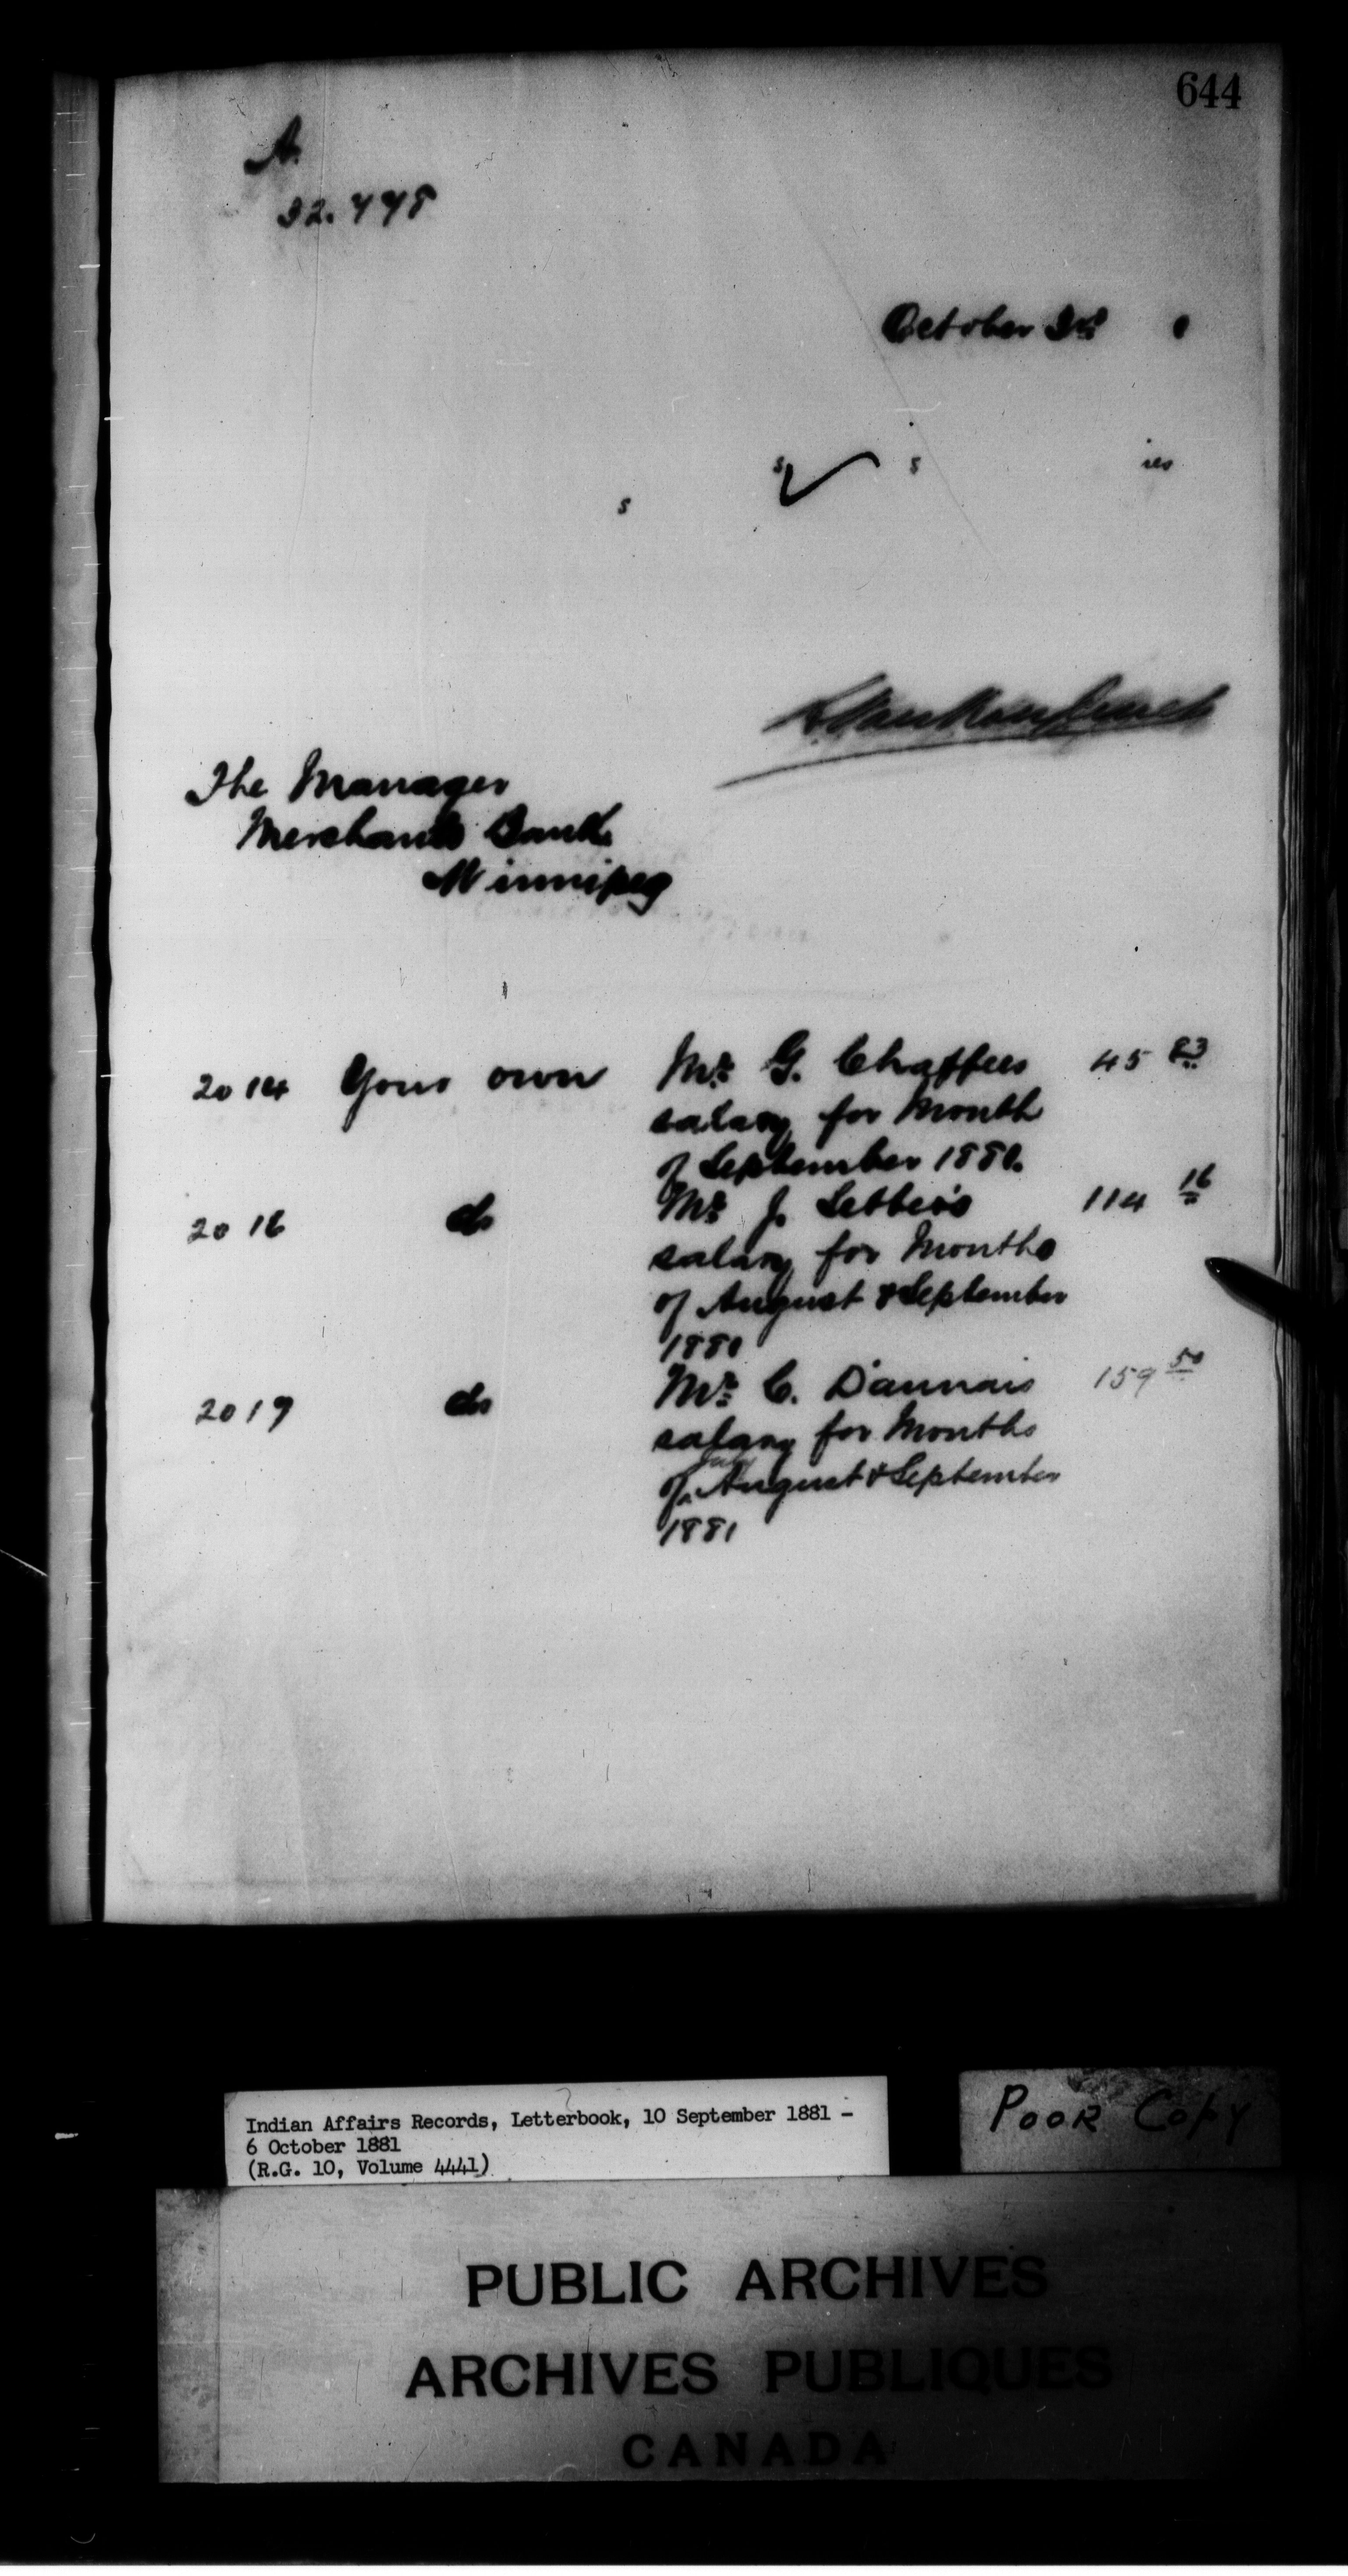 644
A.
32.448
October 3rd 1
s s ies
s
L. VanKoughnet
The Manager
Merchants Bank
Winnipeg
2014 Your own Mr. G. Chaffees 45 83
salary for Month
of September 1881.
2016 do Mr. J. 114 16
salary for Months
of August & September
1881
2019 do Mr. C. Daunais 159 50
salary for Months
July
of August & September
1881
Indian Affairs Records, Letterbook, 10 September 1881 -
6 October 1881
(R.G. 10, Volume 4441)
POOR COPY
PUBLIC ARCHIVES
ARCHIVES PUBLIQUES
CANADA